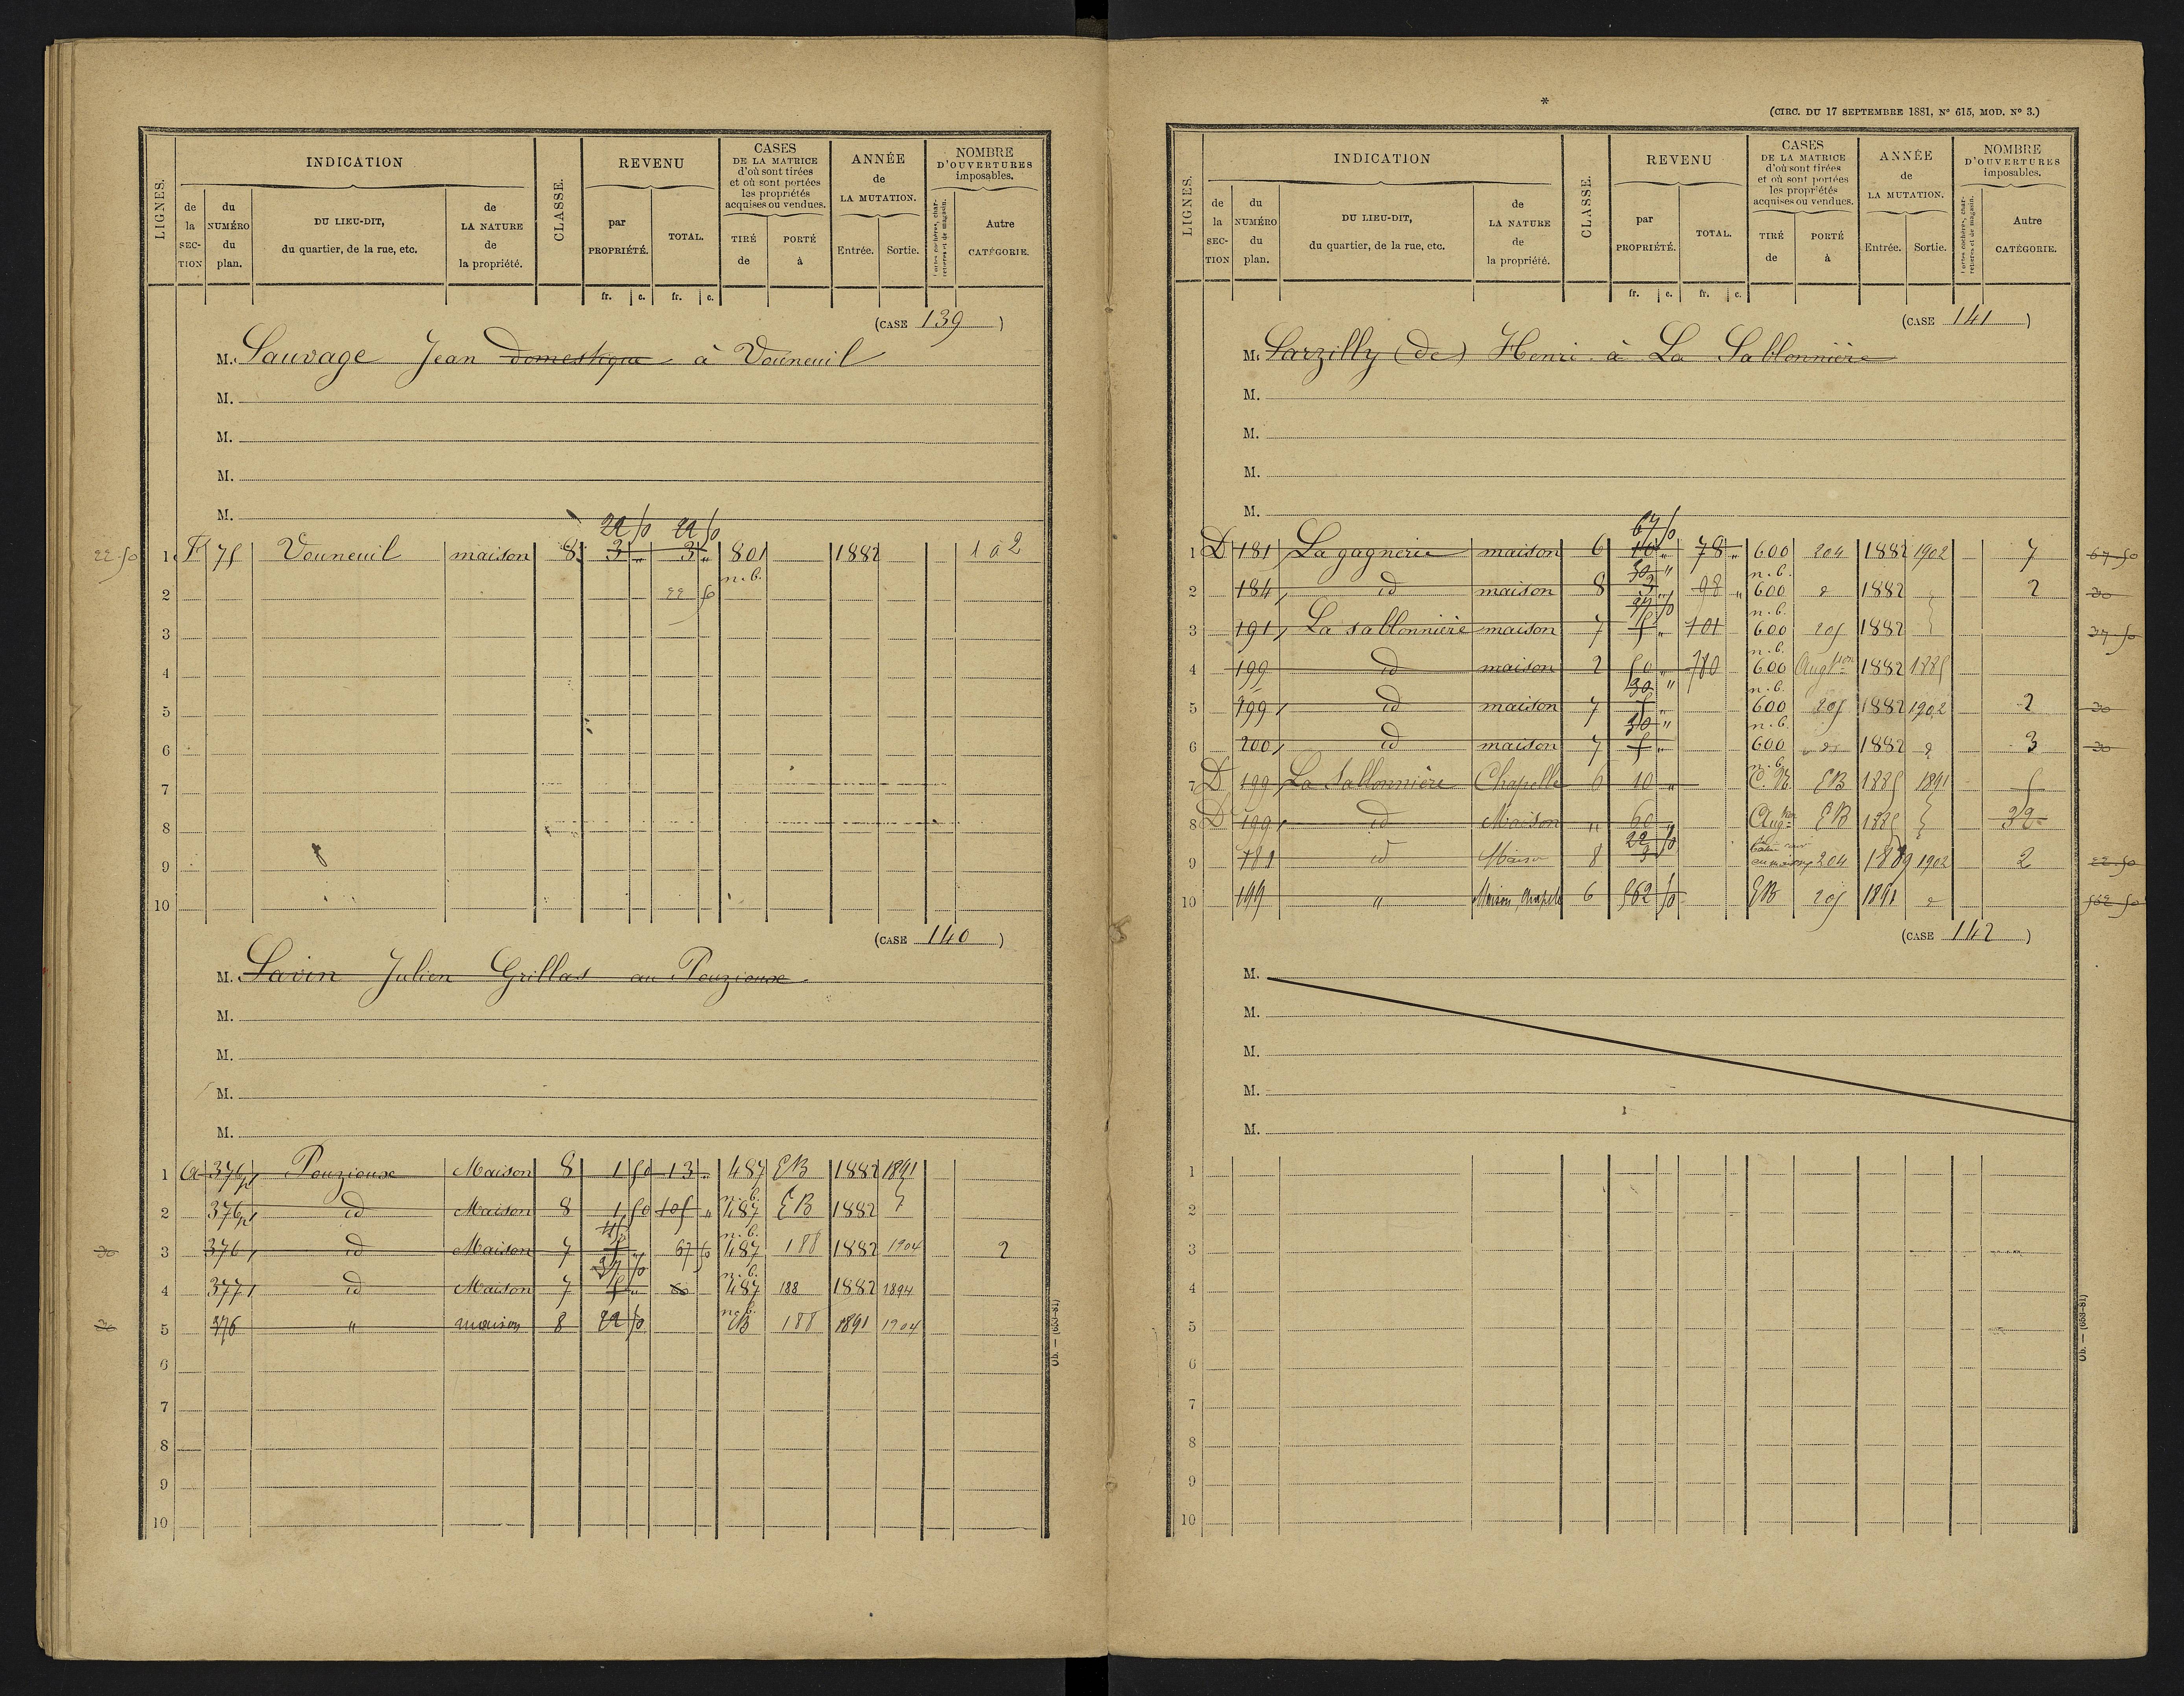 LIGNES.
INDICATION
de la SECTION
du NUMÉRO du plan.
DU LIEU-DIT, du quartier, de la rue, etc.
de LA NATURE de la propriété.
CLASSE.
REVENU
par PROPRIÉTÉ.
TOTAL.
fr. c. fr. c.
CASES DE LA MATRICE d'où sont tirées et où sont portées les propriétés acquises ou vendues.
TIRÉ de
PORTÉ à
ANNÉE de LA MUTATION.
Entrée. Sortie.
NOMBRE D'OUVERTURES imposables.
Portes cochères, charretières et de magasin.
Autre CATÉGORIE.
(CASE 139)
M. Sauvage Jean domestique à Vouneuil
M.
M.
M.
M.
22 50 22 50
22 50 1 F 75 Vouneuil maison 8 3 " 3 " 801 1882 1 à 2
n.b.
2 22 50
3
4
5
6
7
8
9
10
(CASE 140)
M. Savin Julien Grillas au Pouzioux
M.
M.
M.
M.
1 A 376p Pouzioux Maison 8 1 50 13 " 487 EB 1882 1891
n.b.
2 376p id Maison 8 1 50 105 " 487 EB 1882
n.b.
30 3 376 id Maison 7 5 " 67 50 487 188 1882 1904 2
37 50 n.b.
4 377 id Maison 7 5 " 487 188 1882 1894
n.b.
5 376 " maison 8 22 50 EB 188 1891 1904
6
7
8
9
10
Ob. — (653-81)
(CIRC. DU 17 SEPTEMBRE 1881, N° 615, MOD. N° 3.)
LIGNES.
INDICATION
de la SECTION
du NUMÉRO du plan.
DU LIEU-DIT, du quartier, de la rue, etc.
de LA NATURE de la propriété.
CLASSE.
REVENU
par PROPRIÉTÉ.
TOTAL.
fr. c. fr. c.
CASES DE LA MATRICE d'où sont tirées et où sont portées les propriétés acquises ou vendues.
TIRÉ de
PORTÉ à
ANNÉE de LA MUTATION.
Entrée. Sortie.
NOMBRE D'OUVERTURES imposables.
Portes cochères, charretières et de magasin.
Autre CATÉGORIE.
(CASE 141)
M. Sarzilly (de) Henri à La Sablonnière
M.
M.
M.
M.
67 50
1 D 181 La gagnerie maison 6 10 " 78 " 600 204 1882 1902 7 67 50
30 " n.b.
2 184 id maison 8 3 " 98 " 600 1882 2 30
37 50 n.b.
3 191 La sablonnière maison 7 5 " 101 600 205 1882 37 50
n.b.
4 199 id maison 2 50 " 180 600 Augtion 1882 1885
30 " n.b.
5 199 id maison 7 5 " 600 205 1882 1902 2 30
30 " n.b.
6 200 id maison 7 5 " 600 1882 3 30
n.b.
7 D 199 La Sablonnière Chapelle 6 10 " C.N. EB 1885 1891 5
8 D 199 id Maison " 60 " Augtion EB 1885 32
22 50
9 181 id Maison 8 3 204 1889 1902 2 22 50
10 199 " Maison Chapelle 6 562 50 EB 205 1891 562 50
(CASE 142)
M.
M.
M.
M.
M.
1
2
3
4
5
6
7
8
9
10
Ob. — (653-81)